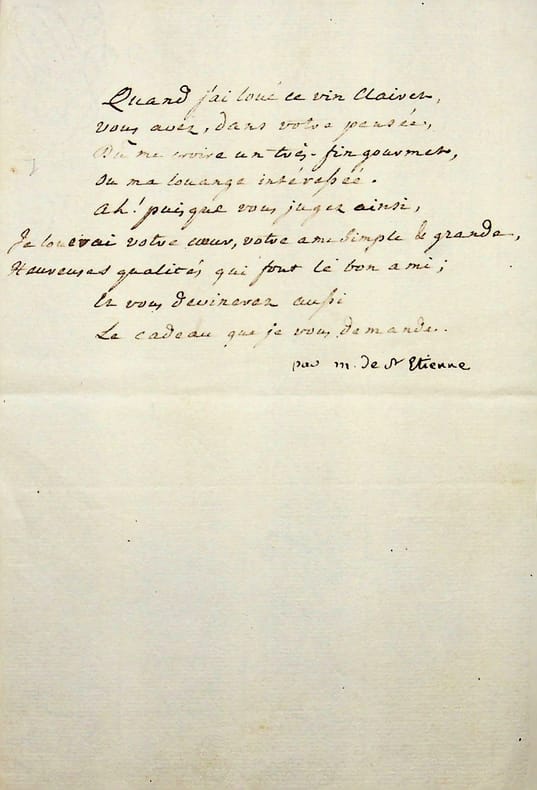 Quand j'ai loué ce vin Clairet,
vous avez, dans votre pensée,
Dû me croire un très-fin gourmet,
Ou ma louange intéressée.
Ah! puisque vous jugez ainsi,
Je louerai votre cœur, votre ame simple & grande,
Heureuses qualités qui font le bon ami;
Et vous devinerez aussi
Le cadeau que je vous demande.
par m. de St Etienne